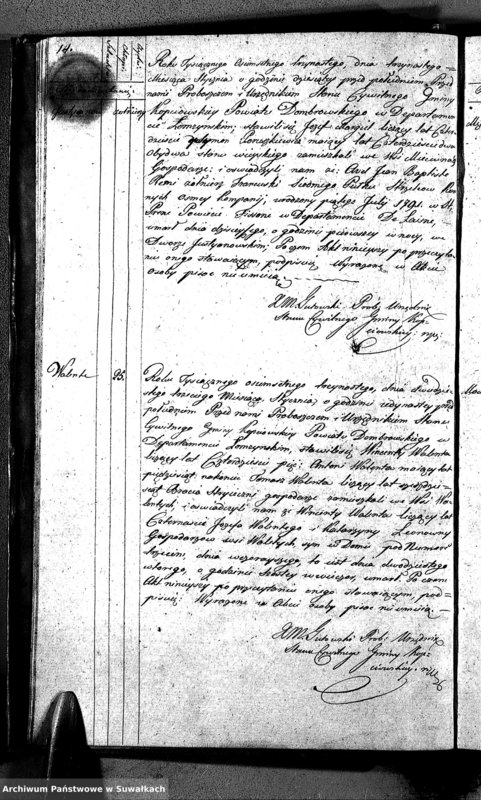 14.
Roku Tysiącznego Osimsetnego trzynastego, dnia trzynastego
Miesiąca Stycznia o godzinie dziesiątey przed południem Przed
nami Proboszczem i Urzędnikiem Stanu Cywilnego Gminy
Kopciowskiey Powiatu Dombrowskiego w Departamen
cie Łomzynskim, stawili się Jozef liczący lat Czter
dzieści Szymon mający lat Czterdzieści dwa
Obydwa stanu wieyskiego zamieszkali we Wsi
Gospodarze: i oświadczyli nam iż Jean Baptiste
Remi żołnierz Francuski Siodmego Pułku Strzelcow Kon
nych Osmey kompanij, urodzony piątego July 1791 w St.
w Departamencie De Laisne,
umarł dnia dziesiątego, o godzinie pierwszey w nocy, we
Dworze Justyanowskim, Poczem Akt ninieyszy po przeczyta
niu onego stawaiącym, podpisaliśmy Wyrażone w Akcie
Osoby pisać nieumieią
X M. Gutowski Prob: Urzędnik
Stanu Cywilnego Gminy Kop
ciowskiey. mp
Walenta
25.
Roku Tysiącznego osimsetnego trzynastego, dnia dwudzie
stego trzeciego Miesiąca Stycznia o godzinie iedynastey przed
południem Przed nami Proboszczem i Urzędnikiem Stanu
Cywilnego Gminy Kopciowskiey Powiatu Dombrowskiego w
Departamencie Łomzynskim, stawili się Wincenty Walenta
liczący lat Czterdzieści pięć: Antoni Walenta mający lat
pięćdziesiąt, nakoniec Tomasz Walenta liczący lat
Bracia Stryieczni gospodarze zamieszkali we Wsi Wa
lentych, i oświadczyli nam iż Wincenty Walenta liczący lat
Czternaście Jozefa Walentego i Katarzyny
Gospodarzow wsi Walentych, syn w Domu pod Numerem
trzecim, dnia wczorayszego, to iest dnia dwudziestego
wtorego, o godzinie szostey wewieczor, umarł. Poczem
Akt ninieyszy po przeczytaniu onego stawaiącym, pod
pisaliśmy: Wyrażone w Akcie Osoby pisać nieumieią
X M. Gutowski Prob: Urzędnik
Stanu Cywilnego Gminy Kop
ciowskiey. mp
Archiwum Państwowe w Suwałkach